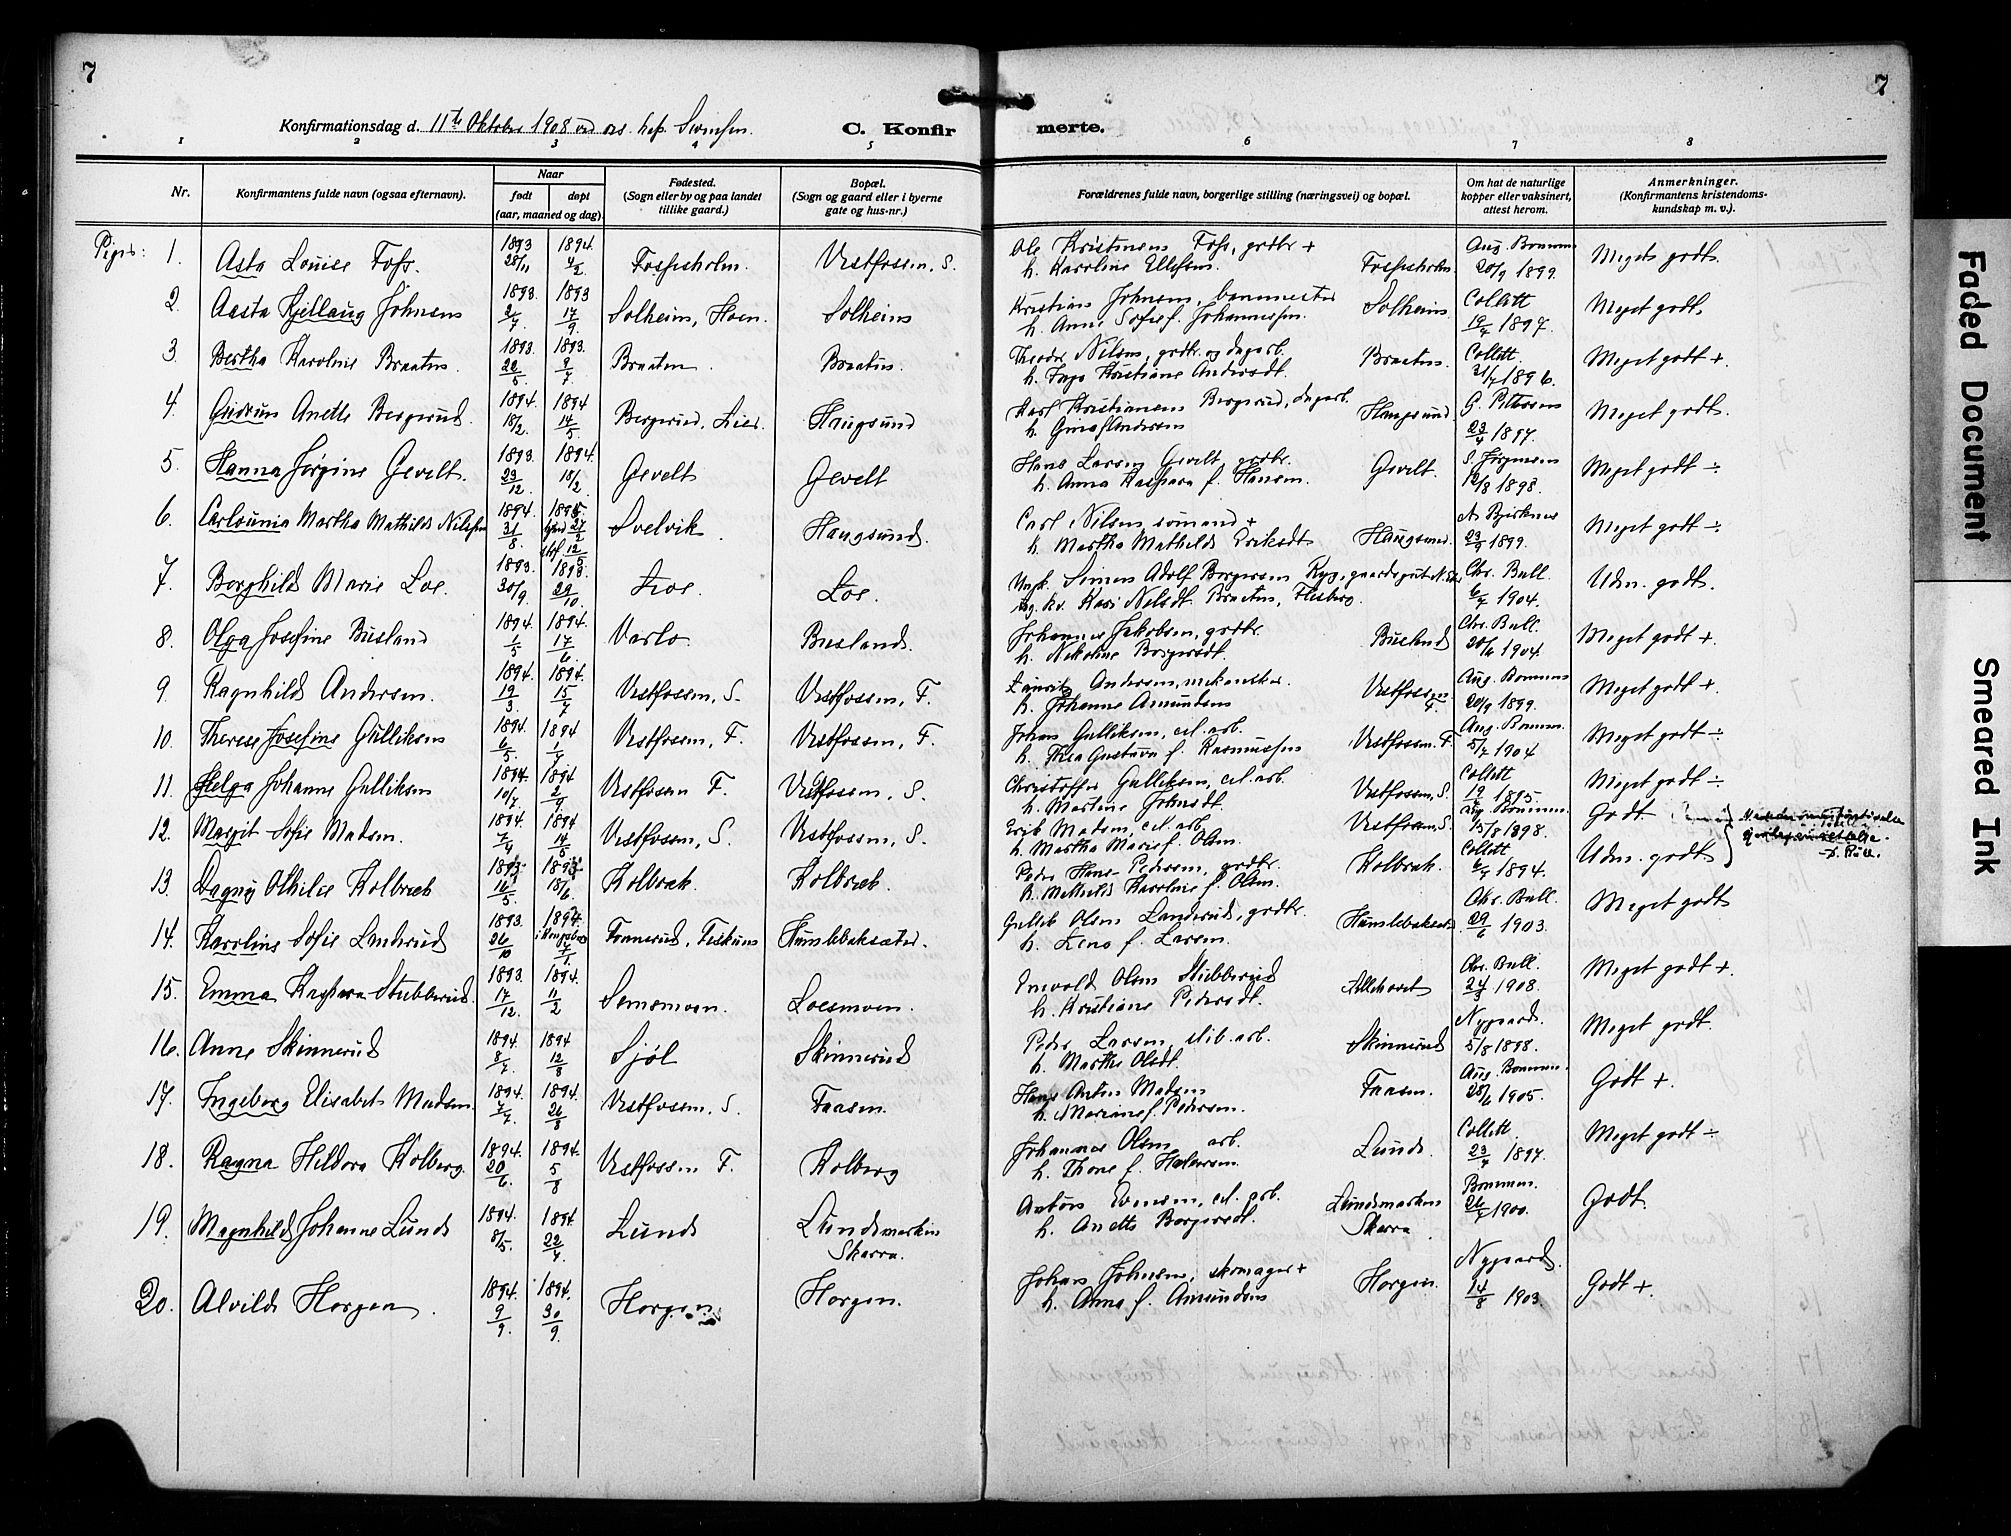 7
7
Konfirmationsdag d. 11te Oktober 1908 ved
C. Konfirmerte.
1 2 3 4 5 6 7 8
Nr.
Konfirmantens fulde navn (ogsaa efternavn).
Naar
født
døpt
(aar, maaned og dag).
Fødested.
(Sogn eller by og paa landet
tillike gaard.)
Bopæl.
(Sogn og gaard eller i byerne
gate og hus-nr.)
Forældrenes fulde navn, borgerlige stilling (næringsvei) og bopæl.
Om hat de naturlige
kopper eller vaksinert,
attest herom.
Anmerkninger.
(Konfirmantens kristendoms-
kundskap m. v.).
Piger:
1. Asta Louise Foss. 1893 28/11 1894 4/2 Fossesholm. Vestfossen, S. Ole Kristinus Foss, grdbr + Fossesholm. Aug. Bommen Meget godt.
h. Karoline Ellefsen. 20/9 1899.
2. Aasta Kjellaug Johnsen 1893. 2/7. 1893 17/9. Solheim, Hoen. Solheim Kristian Johnsen, banemester Solheim. Collett Meget godt.
h. Anne Sofie f. Johannesen. 19/4 1897.
3. Bertha Karoline Braaten 1893. 22/5. 1893. 9/7. Braaten. Braaten. Theodor Nilsen, grdbr. og dagarb. Braaten. Collett. Meget godt +.
h. Inga Kristiane Andersdt. 21/7 1896.
4. Gudrun Anette Bergerud. 1894. 18/2. 1894 14/5. Bergerud, Lier. Haugsund Karl Kristiansen Bergerud, dagarb. Haugsund G. Pettersen Meget godt.
h. Gina f Andersen 23/4 1897.
5. Hanna Jørgine Gevelt. 1893. 23/12. 1894. 18/2. Gevelt Gevelt Hans Larsen Gevelt grdbr. Gevelt. S. Jørgensen Meget godt ÷
h. Anna Kaspara f. Hansen. 12/8 1898.
6. Carlounia Martha Mathilde Nilsen 1894. 31/8. 1895. 12/5 Svelvik. Haugsund. Carl Nilsen sømand + Haugsund. Meget godt ÷
h. Martha Mathilde Eriksdt 23/9 1899.
7. Borghild Marie Loe. 1893. 30/9. 1893. 29/10. Loe. Loe. Ungk. Simen Adolf Borgersen Ryg, gaardsgut Chr. Bull. Udm. godt.
Kari Nilsdt. Braaten, Flesberg. 6/7 1904.
8. Olga Josefine Busland 1894. 1/5 1894. 17/6 Varlo. Busland. Johannes Jakobsen, grdbr. Busland Chr. Bull. Meget godt +.
h. Nikoline Borgersdt. 20/6 1904.
9 Ragnhild Andersen. 1894. 19/3. 1894. 15/7 Vestfossen, S. Vestfossen, F. Andersen, mekaniker. Vestfossen F. Aug. Bommen Meget godt +.
h. Johanne Amundsen 20/9 1899.
10. Therese Josefine Gulliksen 1894. 6/5. 1894 1/7 Vestfossen, F. Vestfossen, F. Johan Gulliksen, cel. arb. Vestfossen. F. Aug. Bommen. Meget godt ÷
h. Thea Gustava f. Rasmussen 5/7 1904
11. Helga Johanne Gulliksen 1894. 10/7. 1894 2/9. Vestfossen F. Vestfossen, S. Christoffer Gulliksen, cel. arb. Vestfossen, S. Collett Meget godt ÷
h. Martine Johnsdt. 1895.
12. Margit Sofie Madsen. 1894. 7/4 1894 14/5 Vestfossen, S. Vestfossen, S. Erik Madsen, cel. arb. Vestfossen, S. Aug Bommen. Godt
h. Martha Marie f. Olsen. 15/8 1898.
13. Dagny Othilie Kolbræk 1893. 16/5 1893. 18/6. Kolbræk. Kolbræk. Peder Hans Pedersen, grdbr. Kolbræk. Collett Udm. godt
h. Mathilde Karoline f. Olsen. 1894.
14. Karoline Sofie Landerud 1893. 26/10 1894. 7/1. Fiskum Humlebeksæter. Gullik Olsen Landerud, grdbr. Humlebeksæter Chr. Bull. Meget godt
h. Lena f. Larsen. 29/6 1903.
15. Emma Kaspara Stubberud. 1893. 17/12. 1894. 11/2 Semsmoen. Loesmoen. Enevold Olsen Stubberud Chr. Bull. Meget godt +.
h. Kristiane Pedersdt. 24/3 1908.
16. Anne Skinnerud 1894. 8/7. 1894 12/8 Sjøl Skinnerud Peder Larsen, slib. arb. Skinnerud Nygaard. Meget godt.
h. Marthe Olsdt. 5/8 1898.
17. Ingeborg Elisabet Madsen. 1894. 7/7. 1894. 26/8 Vestfossen, S. Faasen. Hans Anton Madsen Faasen. Aug. Bommen. Godt +.
h. Marianne f. Pedersen. 28/6 1905.
18. Ragna Hildora Kolberg. 1894. 20/6. 1894. 5/8 Vestfossen F. Kolberg Johannes Olsen arb. Lund. Collett. Meget godt ÷
h. Thone f. Halvorsen. 23/4 1897.
19. Magnhild Johanne Lund 1894. 8/5. 1894. 22/7. Lund Lundsmarken Anton Evensen, cel. arb. Lundsmarken Bommen. Godt.
Skarra. h. Anette Borgersdt. Skarra 26/7 1900.
20. Alvilde Horgen. 1894. 9/9. 1894. 30/9. Horgen Horgen. Johan Johnsen, skomager + Horgen. Nygaard. Godt +.
h. Anna f. Amundsen 14/8 1903.
Faded Document
Smeared Ink